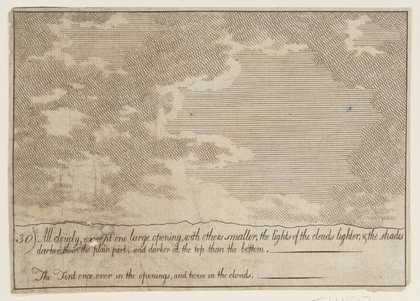 30 All cloudy, except one large opening, with others smaller, the lights of the clouds lighter, & the shades
darker than the plain part, and darker at the top than the bottom.
The Tint once over in the openings, and twice in the clouds.